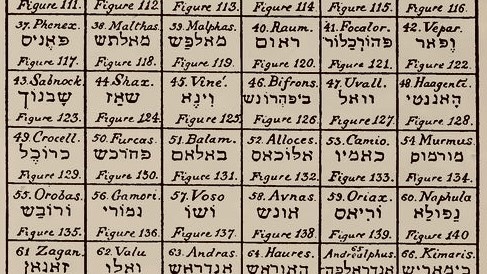 Figure 111. Figure 112 Figure 113. Figure 114 Figure 115. Figure 116.
37. Phenex. 38. Malthas. 39. Malphas. 40. Raum. 41. Focalor. 42. Vepar.
פאֶניס מאלתש מאלפַש ראום פהורכַלור וֶפאר
Figure 117. Figure 118. Figure 119. Figure 120. Figure 121. Figure 122.
43. Sabnock. 44. Shax. 45. Viné. 46. Bifrons. 47. Uvall. 48 Haagenti.
שָבנוך שאַז וִינֵא ביפהרונש וואל הָאגנטי
Figure 123. Figure 124. Figure 125. Figure 126. Figure 127. Figure 128.
49. Crocell. 50. Furcas. 51. Balam. 52. Alloces. 53. Camio. 54 Murmus
כרוכֶל פהורכש באלאם אלוכאס כאמיו מורמוס
Figure 129. Figure 130. Figure 131. Figure 132. Figure 133. Figure 134.
55. Orobas. 56. Gamori. 57. Voso 58. Avnas. 59. Oriax. 60. Naphula
ורובַש גמורי ושו אונש וריאס נפולא
Figure 135. Figure 136. Figure 137. Figure 138. Figure 139. Figure 140
61 Zagan. 62. Valu 63. Andras. 64. Haures. 65 Andrealphus. 66. Kimaris.
זאגאן ואלו אנדראש האוראש אנדראלפה כימאריש